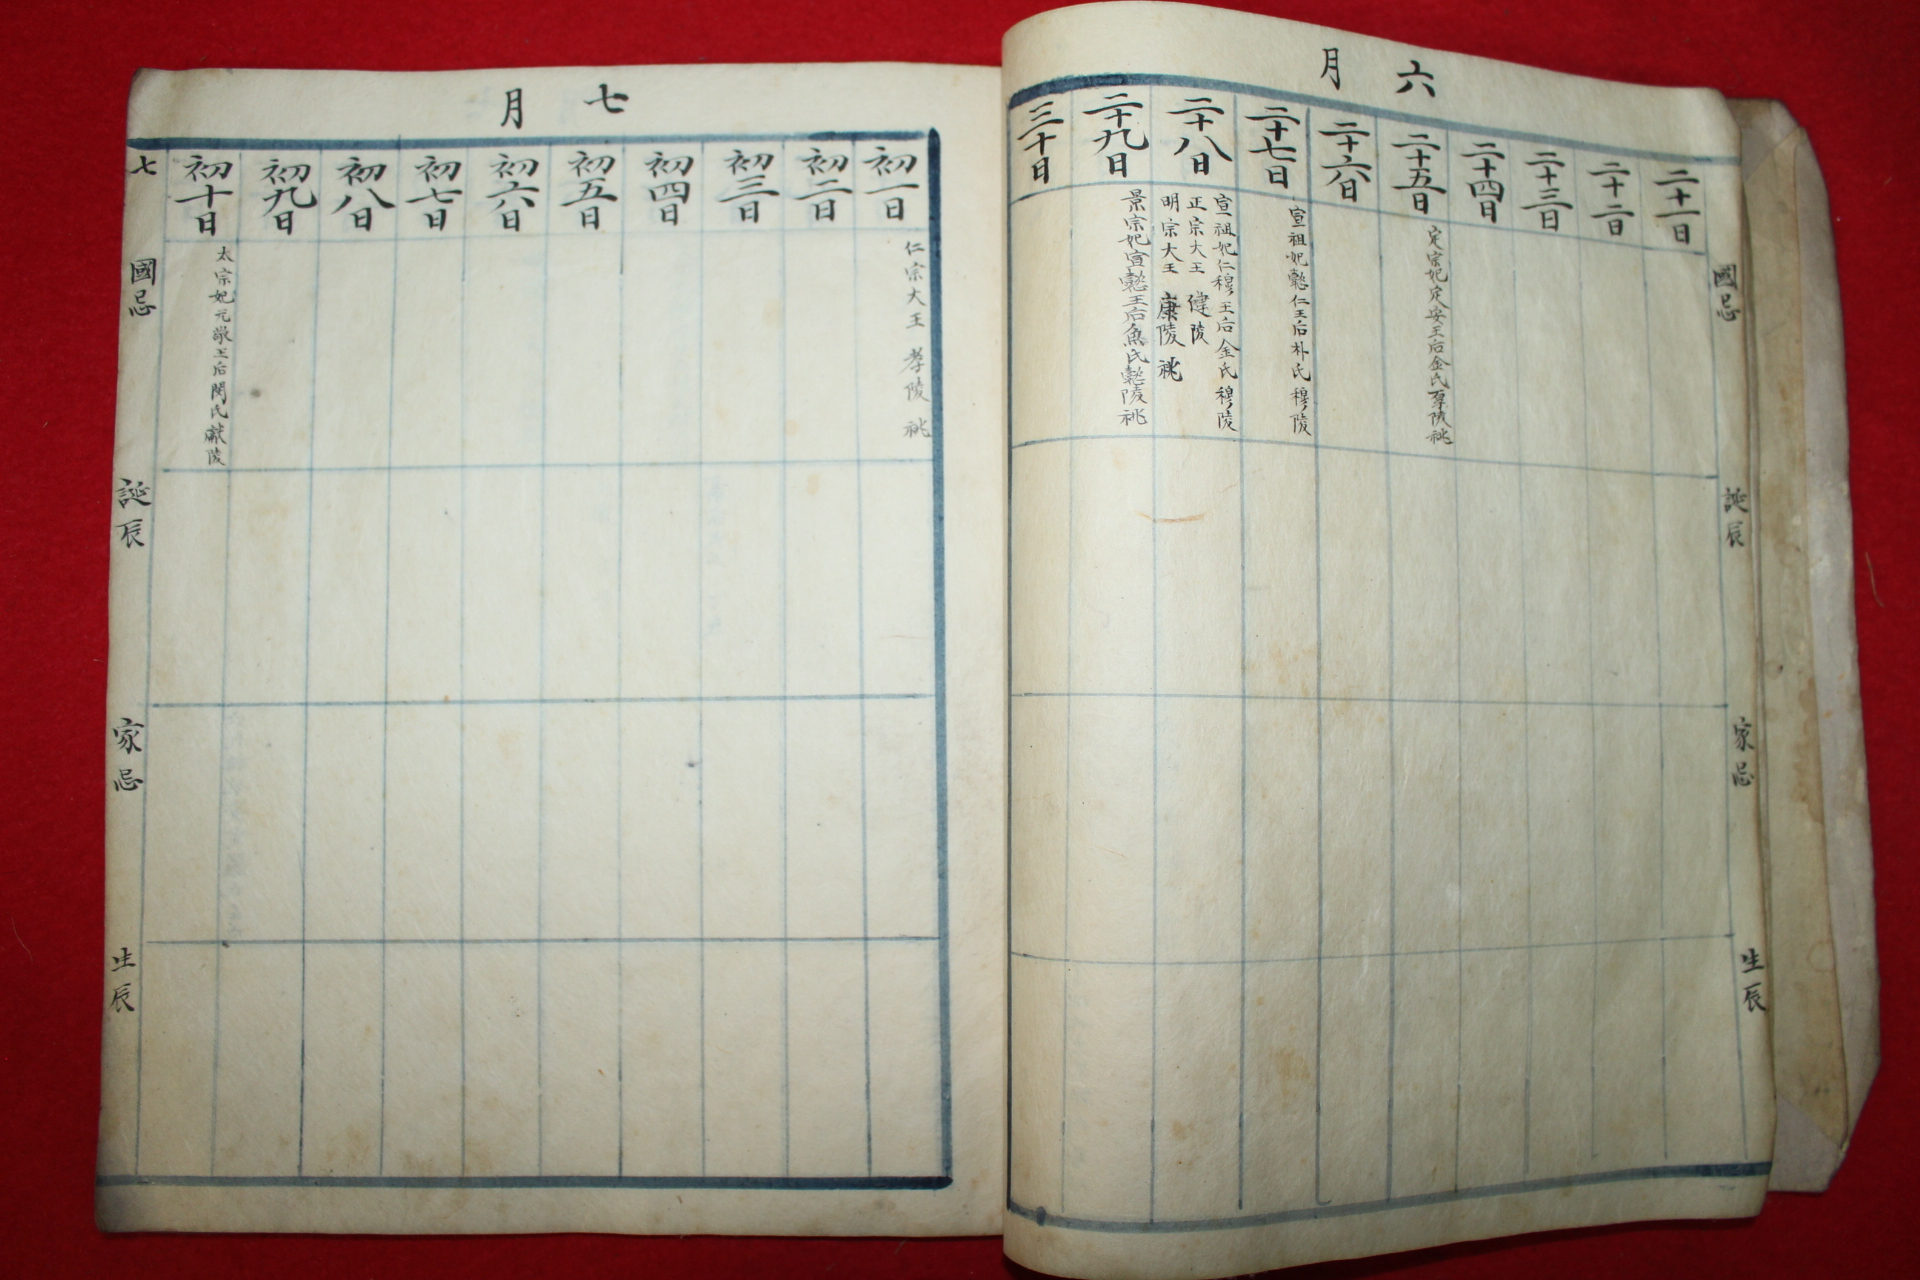 六月
國忌
誕辰
家忌
生辰
二十一日
二十二日
二十三日
二十四日
二十五日
定宗妃定安王后金氏厚陵祧
二十六日
二十七日
宣祖妃懿仁王后朴氏 穆陵
二十八日
宣祖妃仁穆王后金氏 穆陵
正宗大王 健陵
明宗大王 康陵 祧
二十九日
景宗妃宣懿王后魚氏懿陵祧
三十日
七月
初一日
仁宗大王 孝陵 祧
初二日
初三日
初四日
初五日
初六日
初七日
初八日
初九日
初十日
太宗妃元敬王后閔氏獻陵
七
國忌
誕辰
家忌
生辰